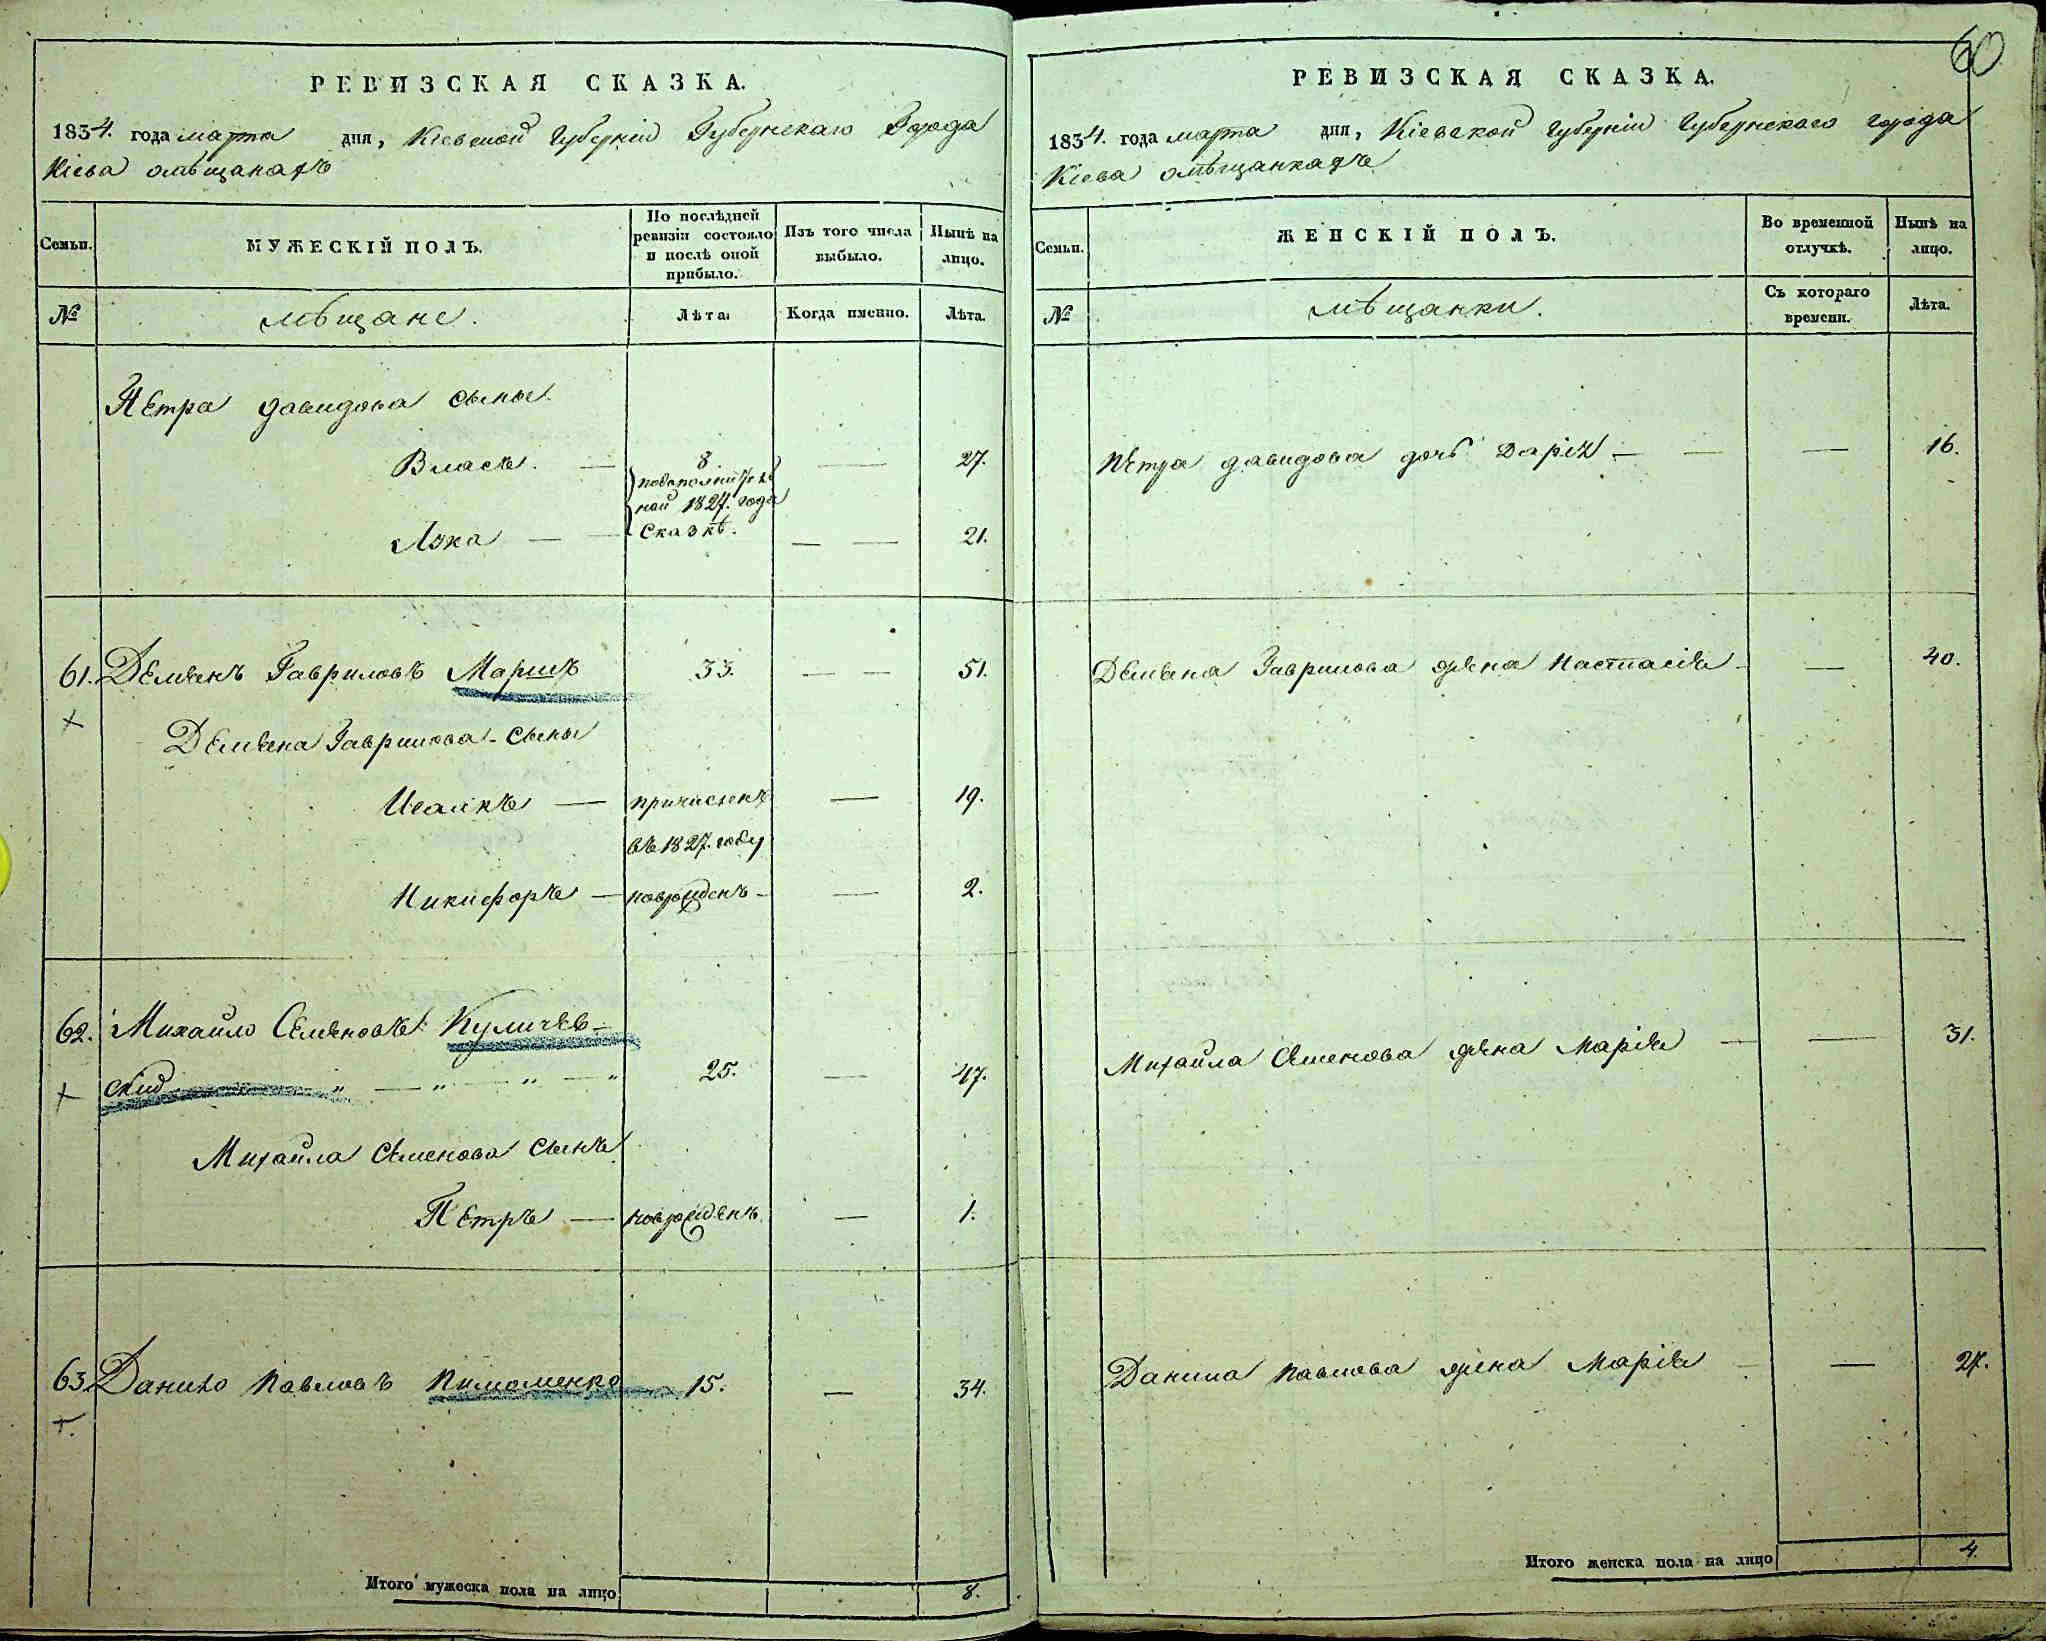 РЕВИЗСКАЯ СКАЗКА.
1834. года марта дня, Кіевской Губерніи Губернскаго Города
Кіева омѣщанахъ
Семьи.
МУЖЕСКІЙ ПОЛЪ.
По послѣдней ревизіи состояло и послѣ оной прибыло.
Изъ того числа выбыло.
Нынѣ на лицо.
№
мѣщане.
Лѣта.
Когда именно.
Лѣта.
Петра давидова сыны
Власъ. — 8. — 27.
подополнитель
ной 1827. года
Сказкѣ.
Лука — — — 21.
61. Демьянъ Гавриловъ 33. — — 51.
Демьяна Гаврилова сыны
Исаакъ — причисленъ — 19.
въ 1827. году
Никифоръ — новрожденъ — — 2.
62. Михайло Семеновъ Куличев-
скій — „ — „ — „ — „ 25. — 47.
Михайла Семенова сынъ
Петръ — новрожденъ — 1.
63. Данило Павловъ Пимоменко 15. — 34.
Итого мужеска пола на лицо 8.
60
РЕВИЗСКАЯ СКАЗКА.
1834. года марта дня, Кіевской губерніи губернскаго города
Кіева омѣщанкахъ
Семьи.
ЖЕНСКІЙ ПОЛЪ.
Во временной отлучкѣ.
Нынѣ на лицо.
№
мѣщанки.
Съ котораго времени.
Лѣта.
Петра давидова дочь Дарія — — — 16.
Демьяна Гаврилова жена Настасія — — 40.
Михайла Семенова жена Марія — — 31.
Данила Павлова жена Марія — — 27.
Итого женска пола на лицо 4.